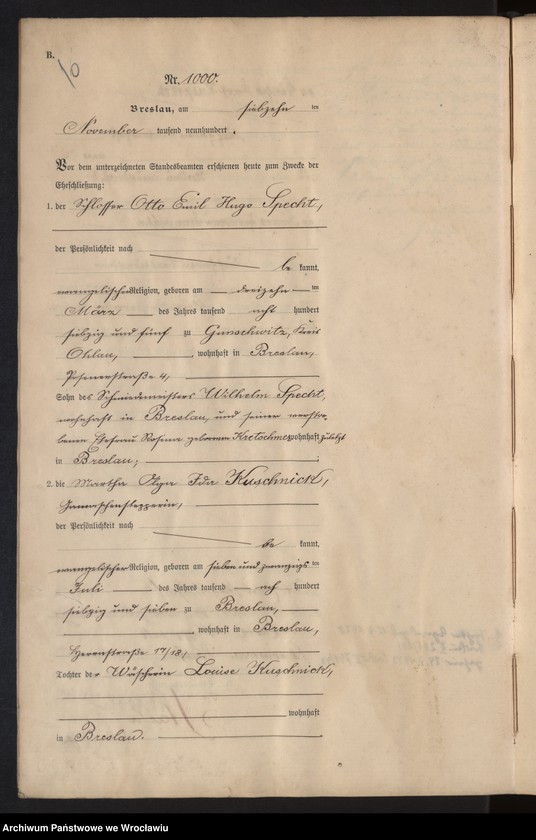 B.
10
Nr. 1000.
Breslau, am siebzehn ten
November tausend neunhundert .
Vor dem unterzeichneten Standesbeamten erschienen heute zum Zwecke der
Eheschließung:
1. der Schlosser Otto Emil Hugo Specht,
der Persönlichkeit nach
be kannt,
evangelischer Religion, geboren am dreizehn ten
März des Jahres tausend acht hundert
siebzig und fünf zu Gunschwitz, Kreis
Ohlau, , wohnhaft in Breslau,
Posenerstraße 4,
Sohn des Schmiedemeisters Wilhelm Specht,
wohnhaft in Breslau, und seiner verstor-
benen Ehefrau Rosina geborenen Kretschmer wohnhaft zuletzt
in Breslau;
2. die Martha Olga Ida Kuschnick,
Gamaschenstepperin,
der Persönlichkeit nach
be kannt,
evangelischer Religion, geboren am sieben und zwanzigs ten
Juli des Jahres tausend acht hundert
siebzig und sieben zu Breslau,
, wohnhaft in Breslau,
Herrenstraße 17/18,
Tochter der Wäscherin Louise Kuschnick,
wohnhaft
in Breslau.
Archiwum Państwowe we Wrocławiu